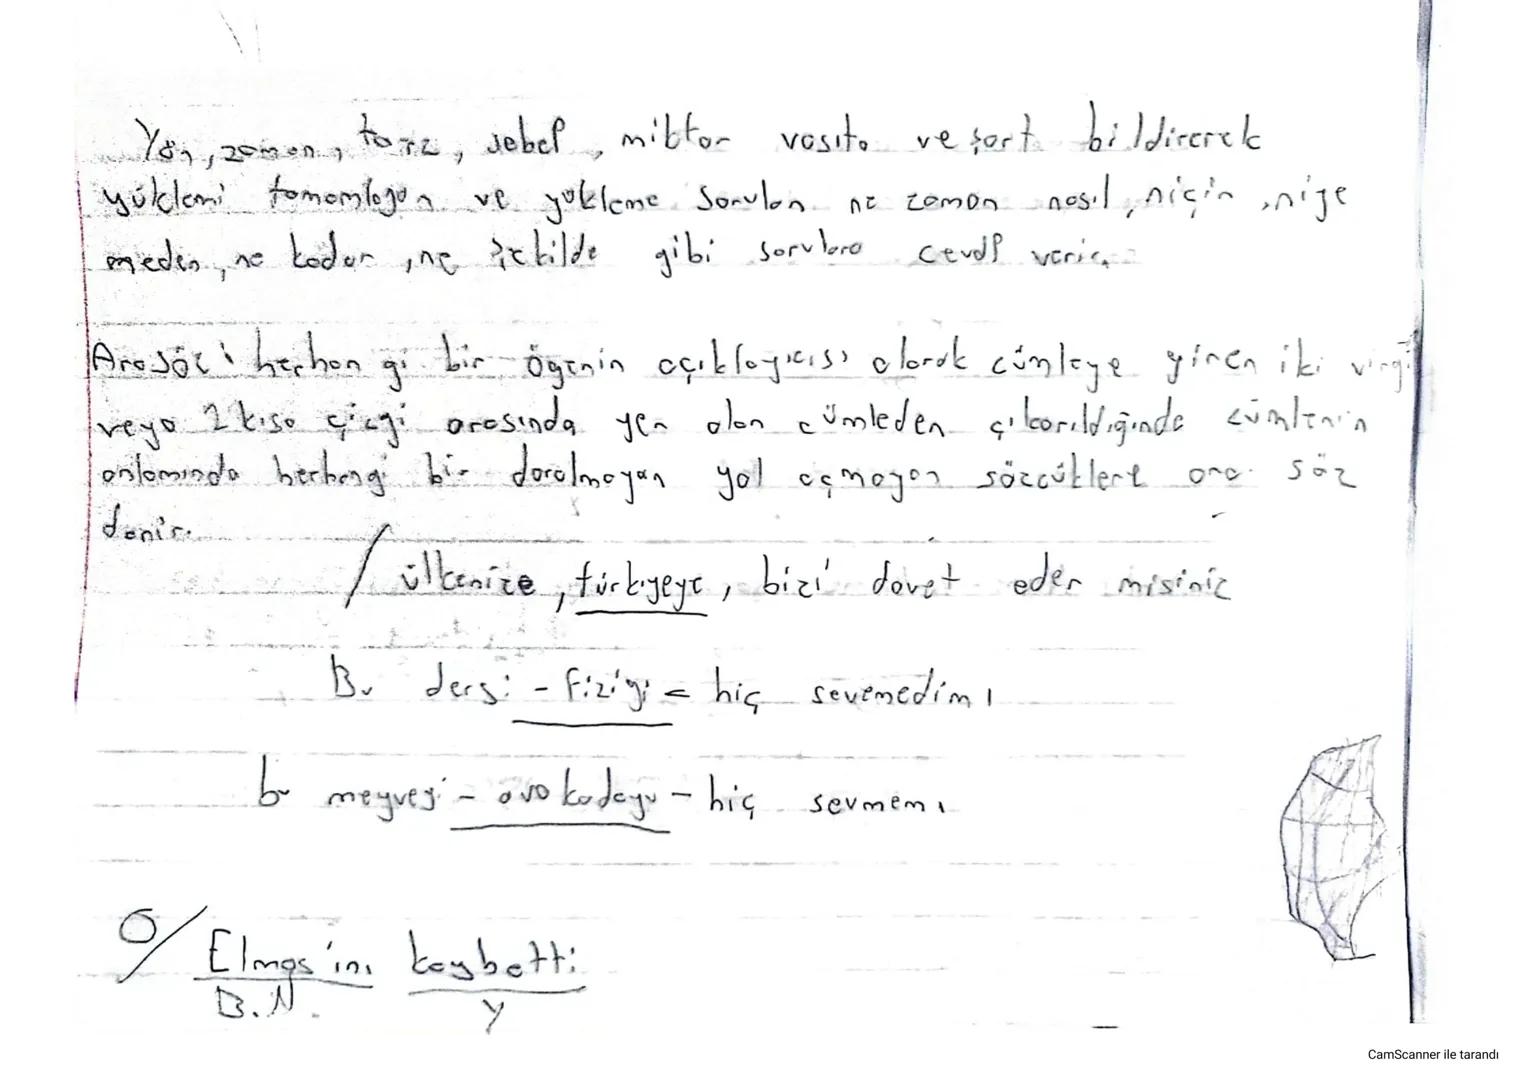 Yön, zaman, tarz, sebep, miktar vasıta ve şart bildirerek
yüklemi tamamlayan ve yükleme sorulan ne zaman nasıl, niçin, niye
neden, ne kadar, ne şekilde gibi sorulara cevap verir.
Arasöz: herhangi bir ögenin açıklayıcısı olarak cümleye giren iki virgül
veya 2 kısa çizgi arasında yer alan cümleden çıkarıldığında cümlenin
anlamında herhangi bir daralmayan yol açmayan sözcüklere ara söz
denir.
/ ülkenize, türkiyeye, bizi davet eder misiniz
Bu dersi - fiziği - hiç sevemedim.
bu meyveyi - avokadoyu - hiç sevmem.
O/ Elmas'ını kaybetti
B.N. Y
CamScanner ile tarandı